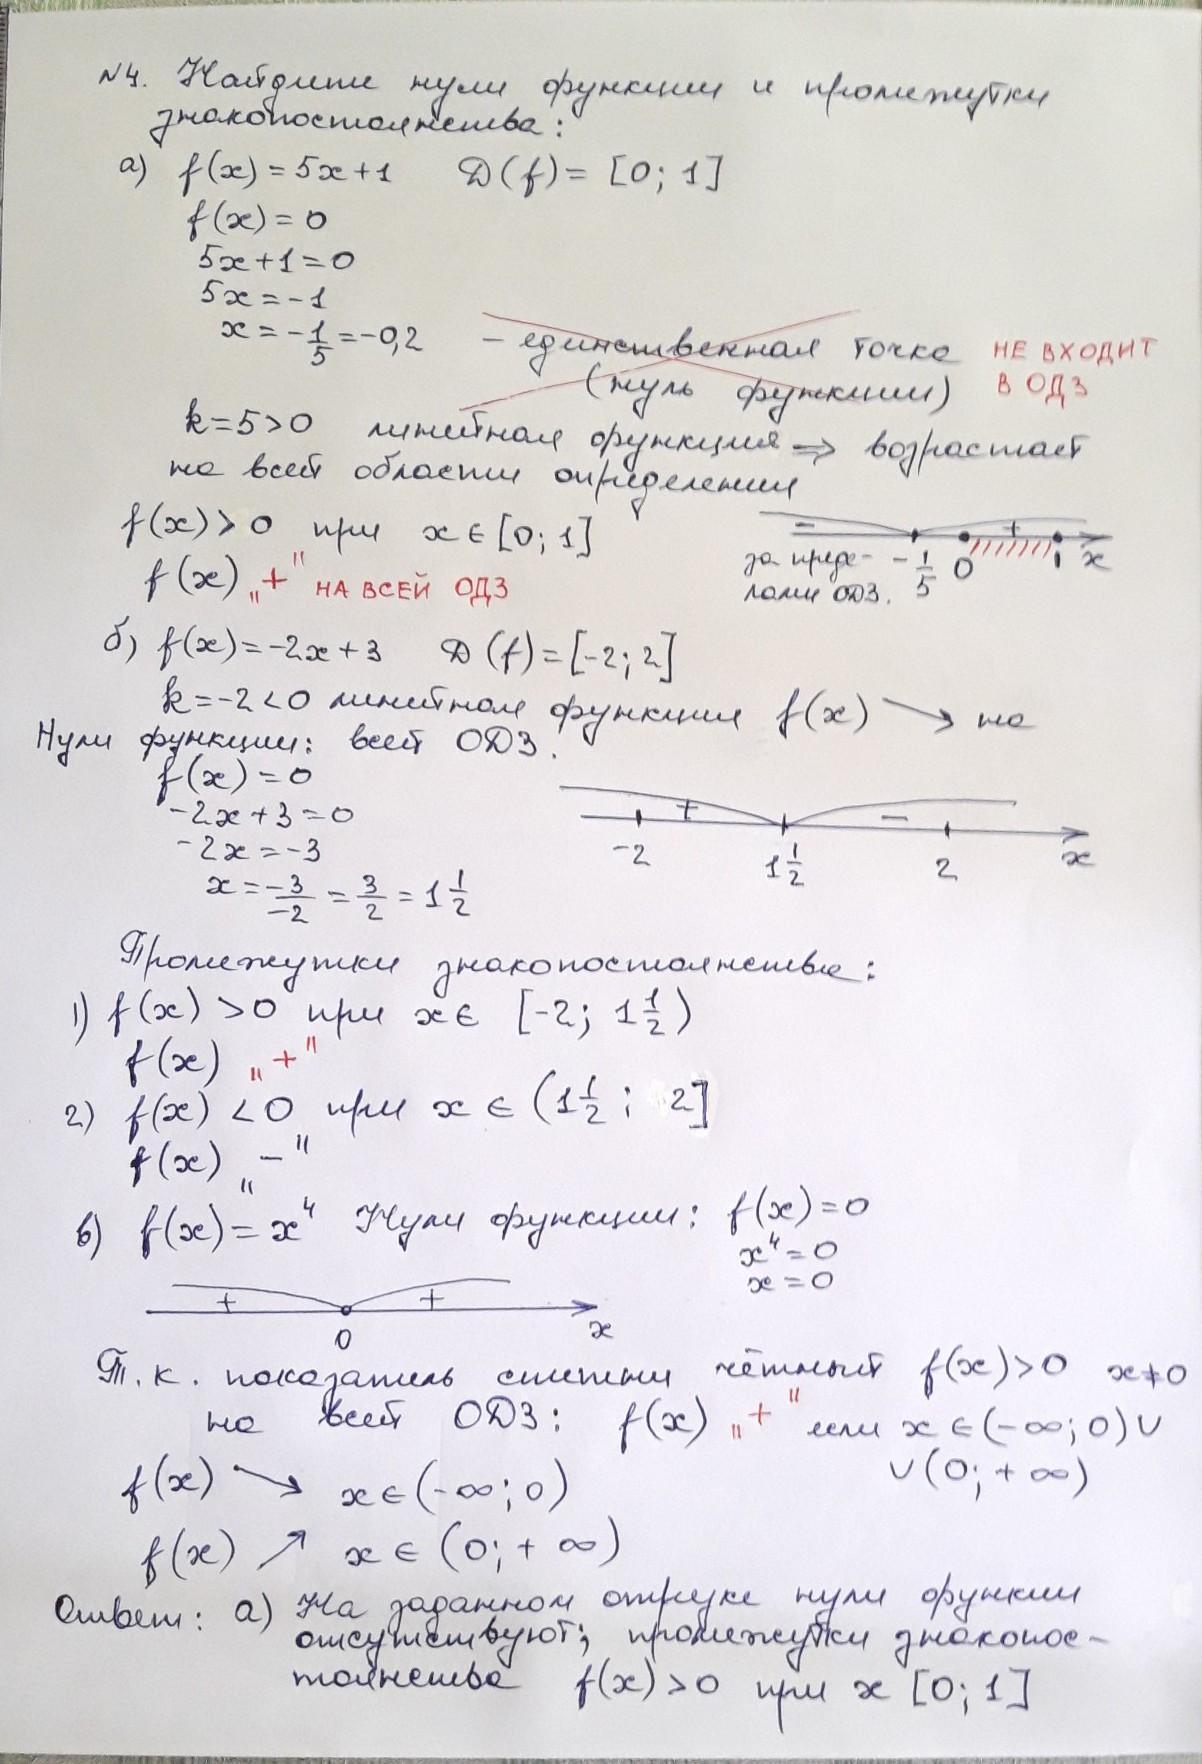 №4. Найдите нули функции и промежутки
знакопостоянства:
а) f(x) = 5x+1 D(f) = [0; 1]
f(x) = 0
5x+1=0
5x=-1
x = -1/5 = -0,2 - единственная точка НЕ ВХОДИТ
(нуль функции) В ОДЗ
k=5>0 линейная функция ⇒ возрастает
на всей области определения
f(x) > 0 при x ∈ [0; 1]
- + 
за преде- -1/5 0 1 x
лами ОДЗ.
f(x) „+" НА ВСЕЙ ОДЗ
б) f(x) = -2x+3 D(f) = [-2; 2]
k=-2<0 линейная функция f(x) ↘ на
Нули функции: всей ОДЗ.
f(x) = 0
-2x+3=0
-2x=-3
x = -3/-2 = 3/2 = 1 1/2
+ -
-2 1 1/2 2 x
Промежутки знакопостоянства:
1) f(x) > 0 при x ∈ [-2; 1 1/2)
f(x) „+"
2) f(x) < 0 при x ∈ (1 1/2; 2]
f(x) „-"
в) f(x) = x⁴ Нули функции: f(x) = 0
x⁴ = 0
x = 0
+ +
0 x
Т.к. показатель степени чётный f(x) > 0 x≠0
на всей ОДЗ: f(x) „+" если x ∈ (-∞; 0) ∪
∪ (0; +∞)
f(x) ↘ x ∈ (-∞; 0)
f(x) ↗ x ∈ (0; +∞)
Ответ: а) На заданном отрезке нули функции
отсутствуют; промежутки знакопос-
тоянства f(x) > 0 при x [0; 1]